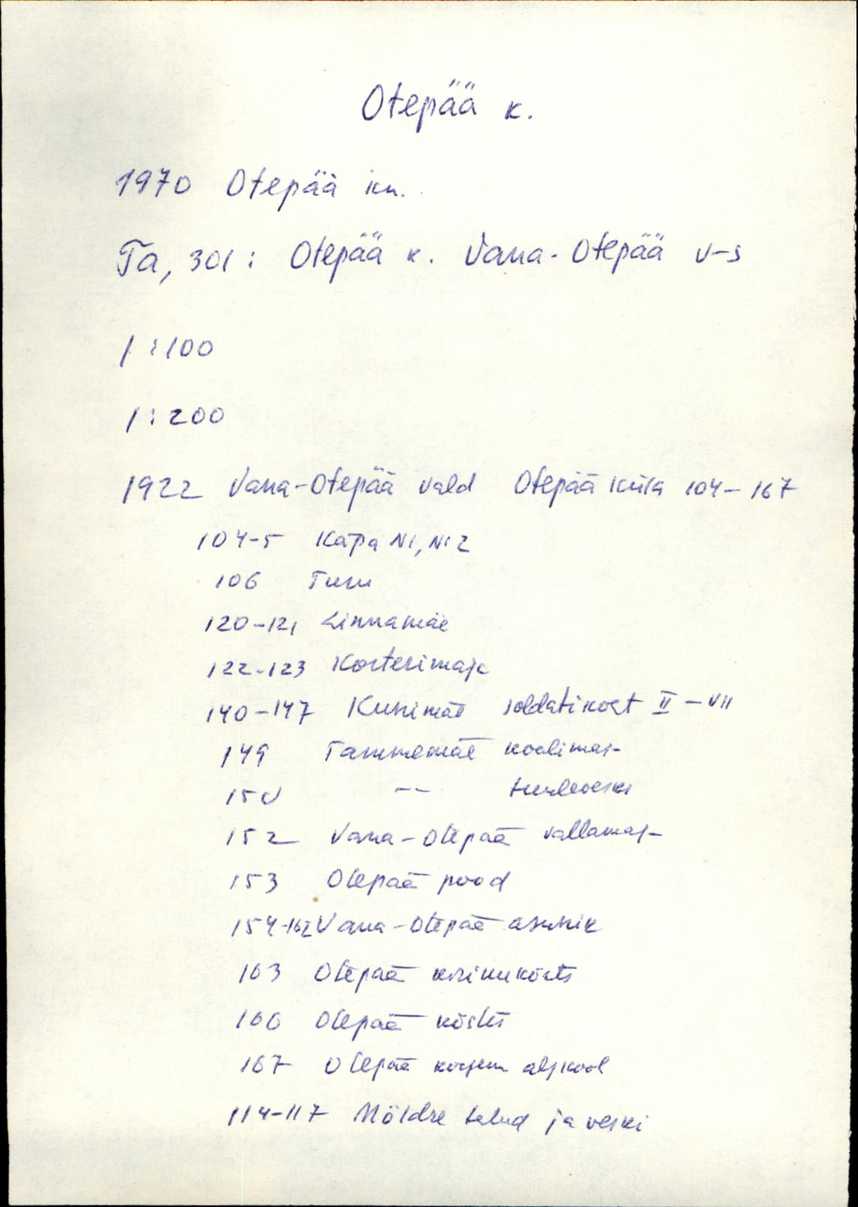 Otepää k.
1970 Otepää kn.
Ta, 301: Otepää k. Vana-Otepää v-s
1:100
1:200
1922 Vana-Otepää vald Otepää küla 104-167
104-5 Kapa N1, N2
106 Turu
120-121 Linnamäe
122-123 Korterimaja
140-147 Kunimäe soldatikoht II - VII
149 Tammemäe koolimaj-
150 -"- tuuleveski
152 Vana-Otepää vallamaj-
153 Otepää pood
154-162 Vana-Otepää asunik
163 Otepää kirikukõrts
160 Otepää köstri
167 Otepää algkool
114-117 Möldre talud ja veski